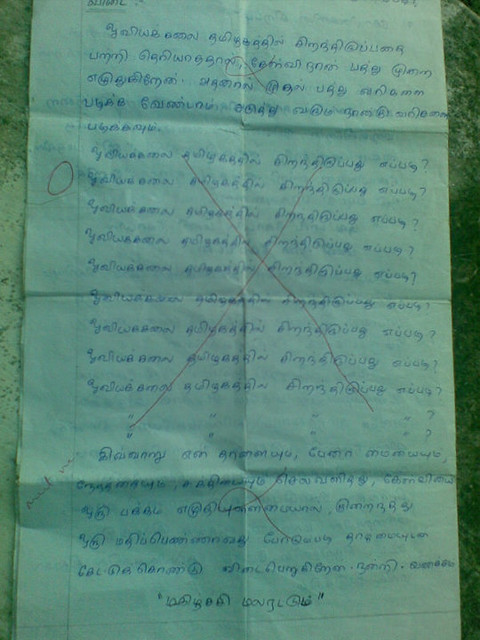 விடை:
ஓவியக்கலை தமிழகத்தில் சிறந்திடுப்பதை
பற்றி தெரியாததால், கேள்வி நான் பத்து முறை
எழுதுகிறேன். அதனால் முதல் பத்து வரிகளை
படிக்க வேண்டாம். அடுத்து வரும் நான்கு வரிகளை
படிக்கவும்.
ஓவியக்கலை தமிழகத்தில் சிறந்திடுப்பது எப்படி?
ஓவியக்கலை தமிழகத்தில் சிறந்திடுப்பது எப்படி?
ஓவியக்கலை தமிழகத்தில் சிறந்திடுப்பது எப்படி?
ஓவியக்கலை தமிழகத்தில் சிறந்திடுப்பது எப்படி?
ஓவியக்கலை தமிழகத்தில் சிறந்திடுப்பது எப்படி?
ஓவியக்கலை தமிழகத்தில் சிறந்திடுப்பது எப்படி?
ஓவியக்கலை தமிழகத்தில் சிறந்திடுப்பது எப்படி?
ஓவியக்கலை தமிழகத்தில் சிறந்திடுப்பது எப்படி?
ஓவியக்கலை தமிழகத்தில் சிறந்திடுப்பது எப்படி?
" " " " ?
" " " " ?
இவ்வாறு என் தாளையும், பேனா மையையும்,
நேரத்தையும், சக்தியையும் செலவளித்து, கேள்வியை
ஒரு பக்கம் எழுதியுள்ளமையால், குறைந்தது
ஒரு மதிப்பெண்ணாவது போடும்படி தாழ்மையுடன்
கேட்டுக்கொண்டு விடைபெறுகிறேன். நன்றி. வணக்கம்
"மகிழ்ச்சி மலரட்டும்"